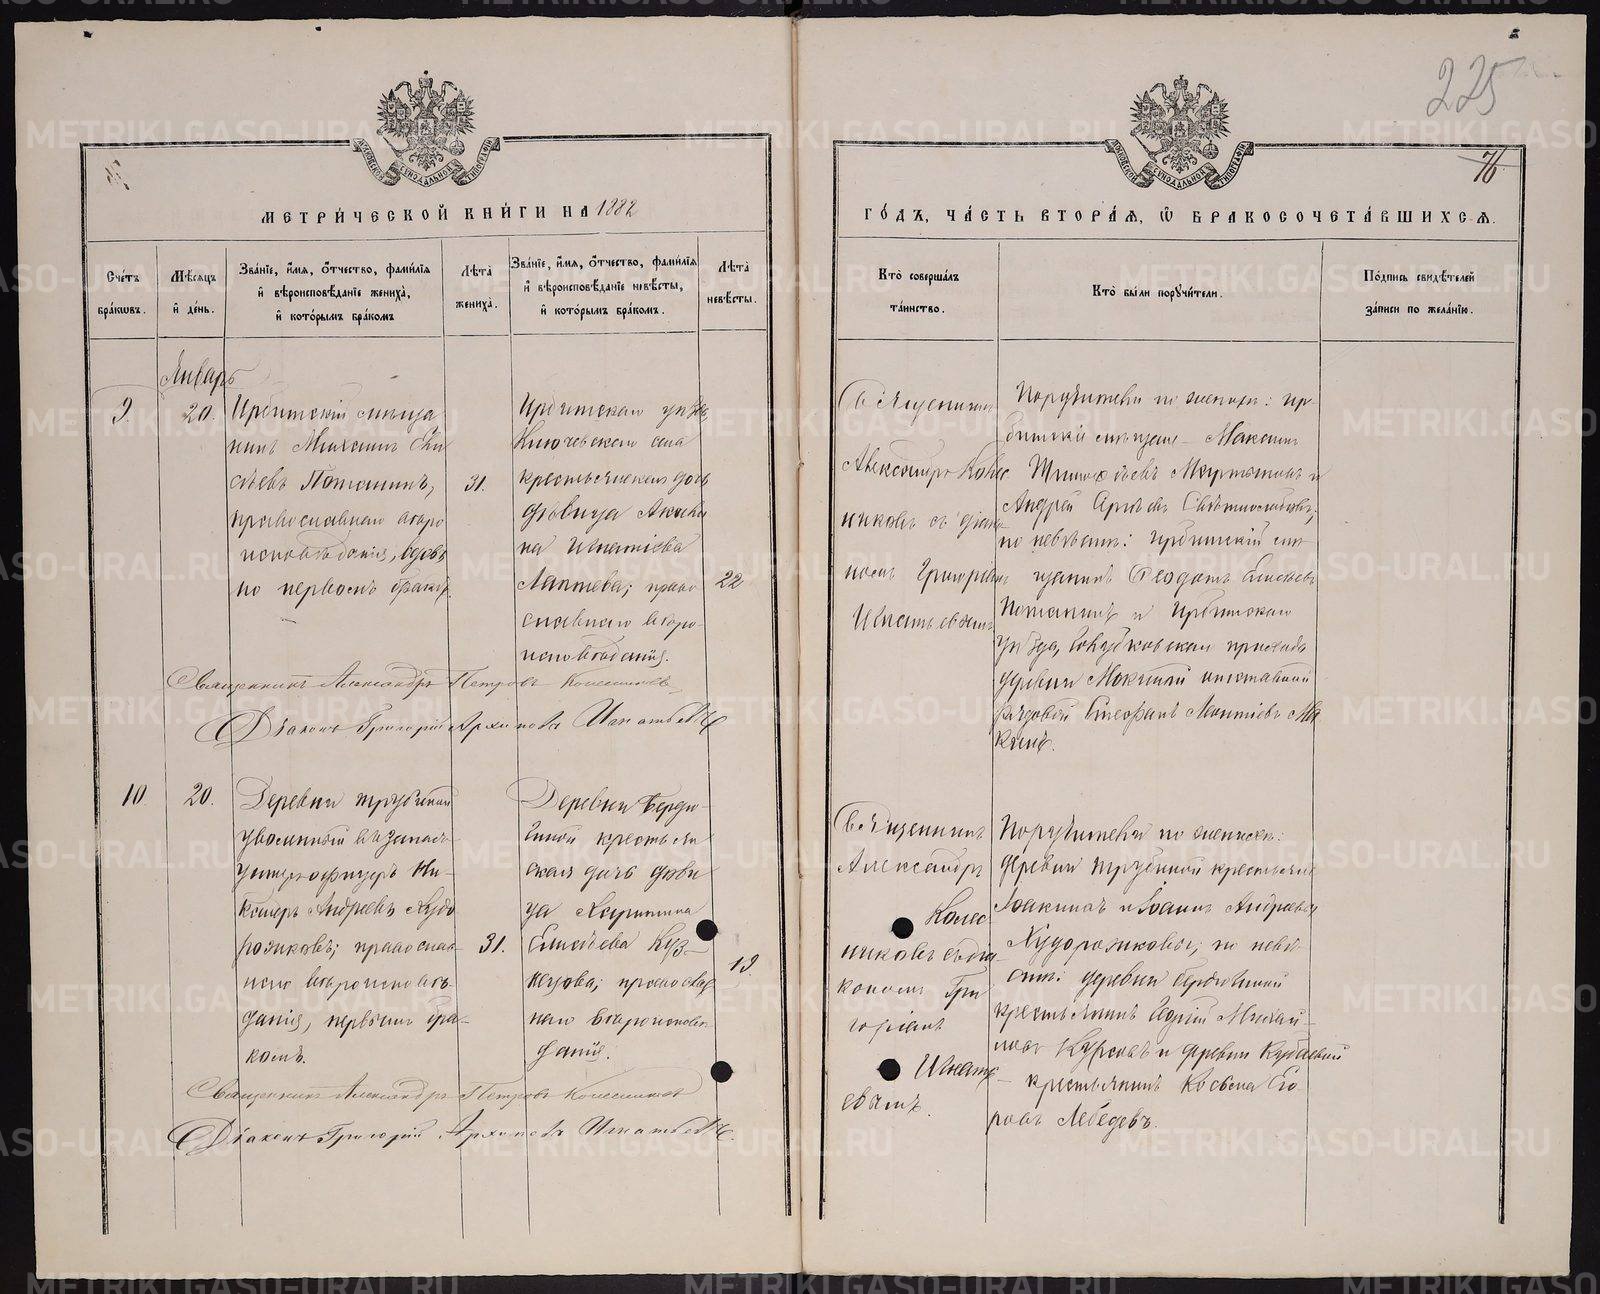 225
76
МЕТРИ́ЧЕСКОЙ КНИ́ГИ НА 1882
ГО́ДЪ, ЧА́СТЬ ВТОРА́Я, Ѡ҆ БРАКОСОЧЕТА́ВШИХСЯ.
Сче́тъ бра́кѡвъ.
Мѣ́сяцъ и҆ де́нь.
Зва́нїе, и҆́мя, ѻ҆́тчество, фами́лїя
и҆ вѣроисповѣ́данїе жениха̀,
и҆ кото́рымъ бра́комъ
Лѣ́та жениха̀.
Зва́нїе, и҆́мя, ѻ҆́тчество, фами́лїя
и҆ вѣроисповѣ́данїе невѣ́сты,
и҆ кото́рымъ бра́комъ.
Лѣ́та невѣ́сты.
Кто̀ соверша́лъ
та́инство.
Кто̀ бы́ли порꙋчи́тели.
По́дпись свидѣ́телей
за́писи по жела́нїю.
Январь
9.
20.
Ирбитскій мѣща
нинъ Михаилъ Ели
сѣевъ Потанинъ,
православнаго вѣро
исповѣданія,
по первомъ бракѣ.
31.
Ирбитскаго уѣзда,
Ключевскаго села
крестьянская дочь
дѣвица Акили
на Игнатіева
Лаптева; право
славнаго вѣро-
исповѣданія.
22
Священникъ
Александръ Колес
никовъ съ діако
номъ Григоріемъ
Игнатьевымъ
Поручители по женихѣ: ир-
битскіе мѣщане Максимъ
Тимоѳеевъ Мартыновъ и
Андрей
по невѣстѣ: ирбитскій мѣ
щанинъ Ѳеодотъ Елисѣевъ
Потанинъ и Ирбитскаго
уѣзда, прихода
деревни отставной
рядовой Стефанъ
Священникъ Александръ Петровъ Колесниковъ
Діаконъ Григорій Архиповъ Игнатьевъ
10
20.
Деревни Трубиной
уволенный въ запасъ
унтеръ-офицеръ Ни-
каноръ Андреевъ Худо
рожковъ; православ-
наго вѣроисповѣ-
данія, первымъ бра-
комъ.
31.
Деревни Бердю-
гиной крестьян
ская дочь дѣви
ца Харитина
Елисѣева Куз-
нецова; православ
наго вѣроисповѣ
данія.
19.
Священникъ
Александръ
Колес-
никовъ съ діа
кономъ Гри
горіемъ
Игнать
евымъ.
Поручители по женихѣ:
деревни Трубиной крестьяне
Іоакимъ и Іоаннъ Андреевы
Худорожковы; по невѣ-
стѣ: деревни Бердюгиной
крестьянинъ Михай-
ловъ и деревни
крестьянинъ Его
ровъ Лебедевъ.
Священникъ Александръ Петровъ Колесниковъ
Діаконъ Григорій Архиповъ Игнатьевъ.
METRIKI.GASO-URAL.RU